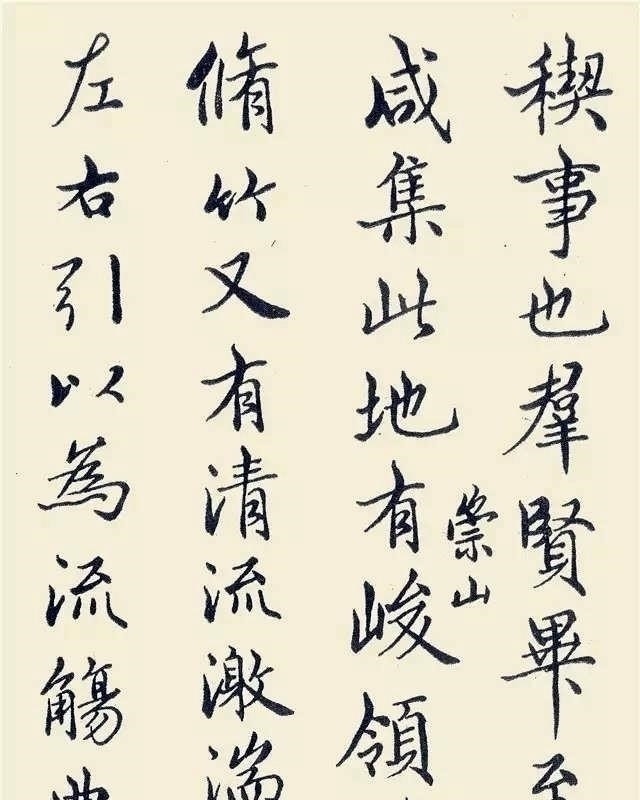 稧事也羣賢畢至
咸集此地有崇山峻領
脩竹又有清流激湍
左右引以為流觴曲